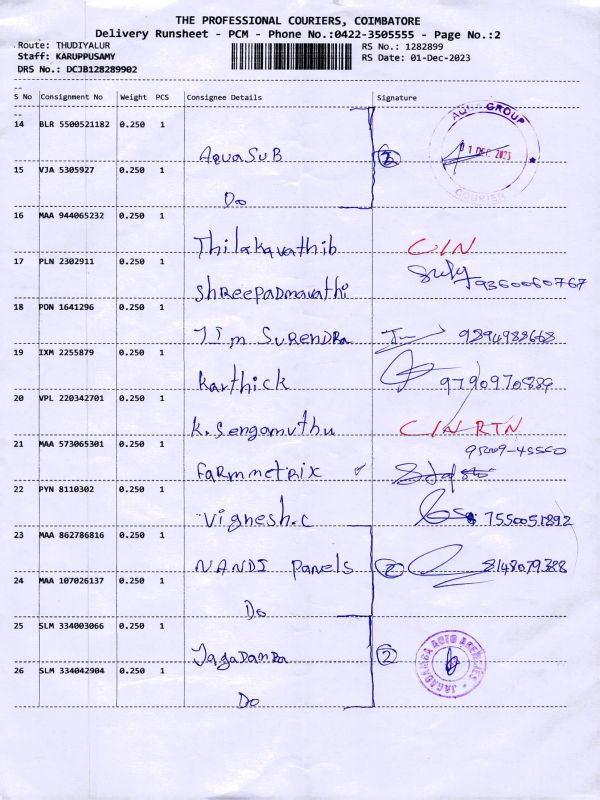 THE PROFESSIONAL COURIERS, COIMBATORE
Delivery Runsheet - PCM - Phone No.:0422-3505555 - Page No.:2
Route: THUDIYALUR RS No.: 1282899
Staff: KARUPPUSAMY RS Date: 01-Dec-2023
DRS No.: DCJB128289902
S No Consignment No Weight PCS Consignee Details Signature
14 BLR 5500521182 0.250 1 AquaSuB 2
AQUA GROUP
01 DEC 2023
COURIER
15 VJA 5305927 0.250 1 Do
16 MAA 944065232 0.250 1 Thilakavathib C/N
17 PLN 2302911 0.250 1 ShReepadmavathi 9360060767
18 PON 1641296 0.250 1 JIM SuRENDRA 9894988668
19 IXM 2255879 0.250 1 Karthick 9790970889
20 VPL 220342701 0.250 1 K. Sengamuthu C/N RTN
21 MAA 573065301 0.250 1 FaRmmetRix ✓
22 PYN 8110302 0.250 1 Vignesh.C 7550051892
23 MAA 862786816 0.250 1 NANDI Panels 2 8148079388
24 MAA 107026137 0.250 1 Do
25 SLM 334003066 0.250 1 JagaDamBa 2
JAGADAMBA AUTO AGENCIES
26 SLM 334042904 0.250 1 Do